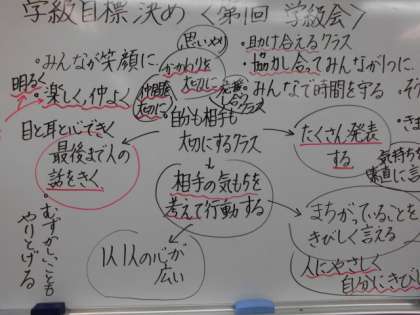 学級目標決め〈第1回 学級会〉
思いやり
・みんなが笑顔に
かかわりを
大切に
・助け合えるクラス
・協力し合ってみんなが1つに
明るく
・楽しく、仲よく
仲間を
大切に
応援し合えるクラス
・みんなで時間を守る
目と耳と心できく
最後まで人の
話をきく
・自分も相手も
大切にするクラス
たくさん発表
する
気持ちを
素直に言
相手の気もちを
考えて行動する
まちがっていることを
きびしく言える
人にやさしく
自分にきび
1人1人の心が
広い
・むずかしいことも
やりとげる